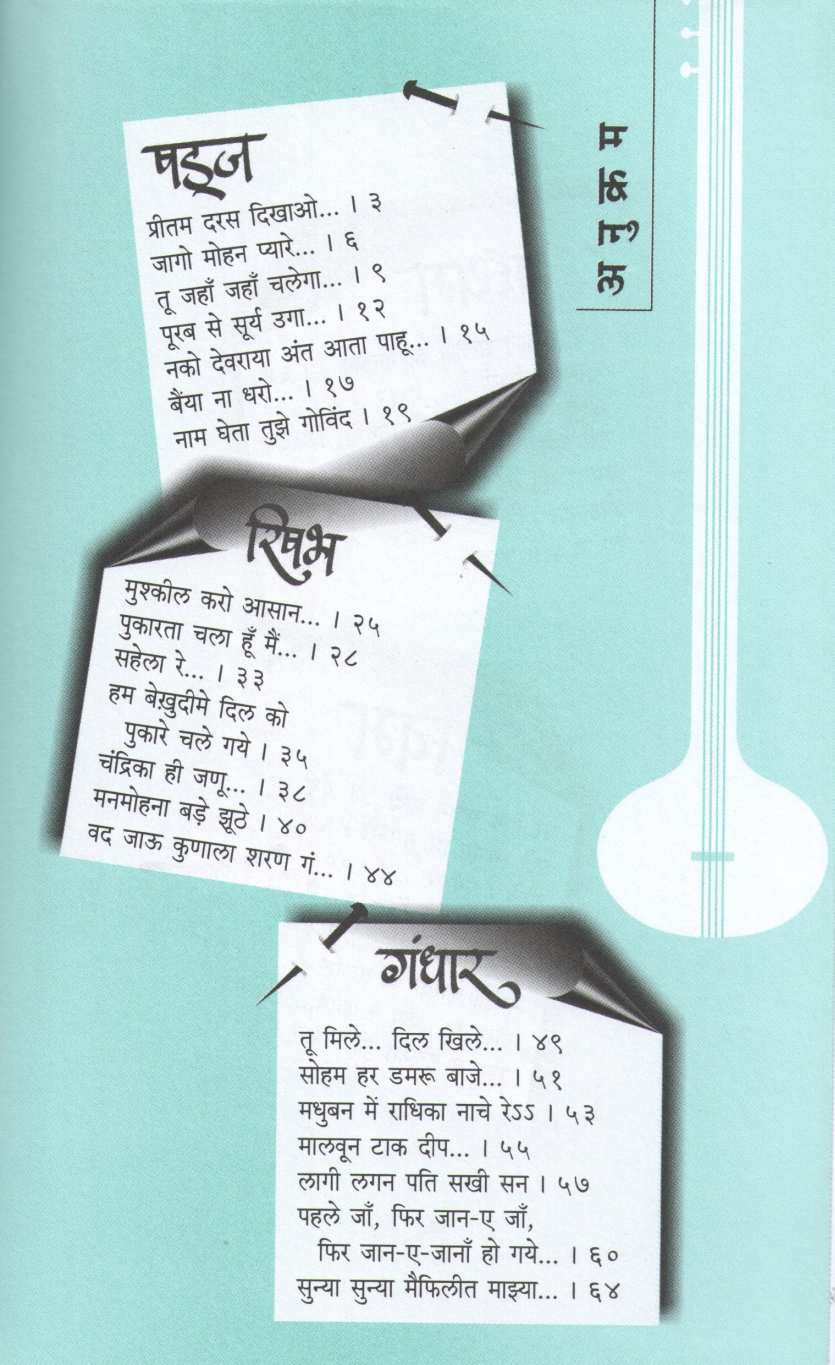 अनुक्रम
षड्ज
प्रीतम दरस दिखाओ... । ३
जागो मोहन प्यारे... । ६
तू जहाँ जहाँ चलेगा... । ९
पूरब से सूर्य उगा... । १२
नको देवराया अंत आता पाहू... । १५
बैंया ना धरो... । १७
नाम घेता तुझे गोविंद । १९
रिषभ
मुश्कील करो आसान... । २५
पुकारता चला हूँ मैं... । २८
सहेला रे... । ३३
हम बेख़ुदीमे दिल को
पुकारे चले गये । ३५
चंद्रिका ही जणू... । ३८
मनमोहना बड़े झूठे । ४०
वद जाऊ कुणाला शरण गं... । ४४
गंधार
तू मिले... दिल खिले... । ४९
सोहम हर डमरू बाजे... । ५१
मधुबन में राधिका नाचे रेऽऽ । ५३
मालवून टाक दीप... । ५५
लागी लगन पति सखी सन । ५७
पहले जाँ, फिर जान-ए जाँ,
फिर जान-ए-जानाँ हो गये... । ६०
सुन्या सुन्या मैफिलीत माझ्या... । ६४